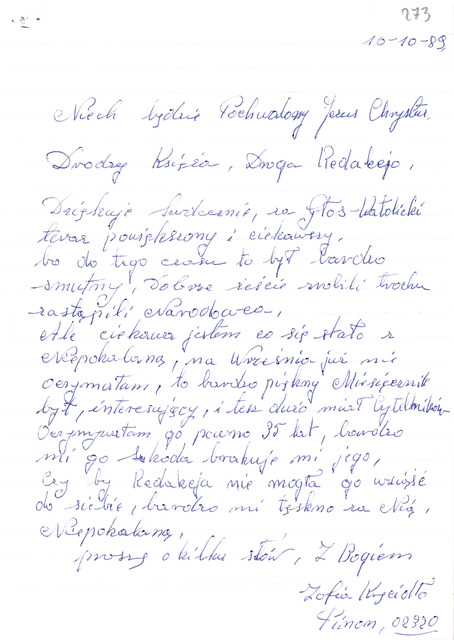 273
10-10-89,
Niech będzie Pochwalony Jezus Chrystus,
Drodzy Księża, Droga Redakcjo,
Dziękuje serdecznie, za Głos-Katolicki
teraz powiększony i ciekawszy,
bo do tego czasu to był bardzo
smutny, Dobrze żeście zrobili trochu
zastąpili Narodowca,
Ale ciekawa jestem co się stało z
Niepokalaną, na Września już nie
oczymałam, to bardzo piękny Miesięcznik
był, interesujący, i tesz dużo miał Cytelników
Oczymywałam go pewno 35 lat, bardzo
mi go szkoda brakuje mi jego,
Czy by Redakcja nie mogła go wziąść
do siebie, bardzo mi tęskno za Nią,
Niepokalaną,
proszę o kilku słów, Z Bogiem
Zofia
Pinon, 02320